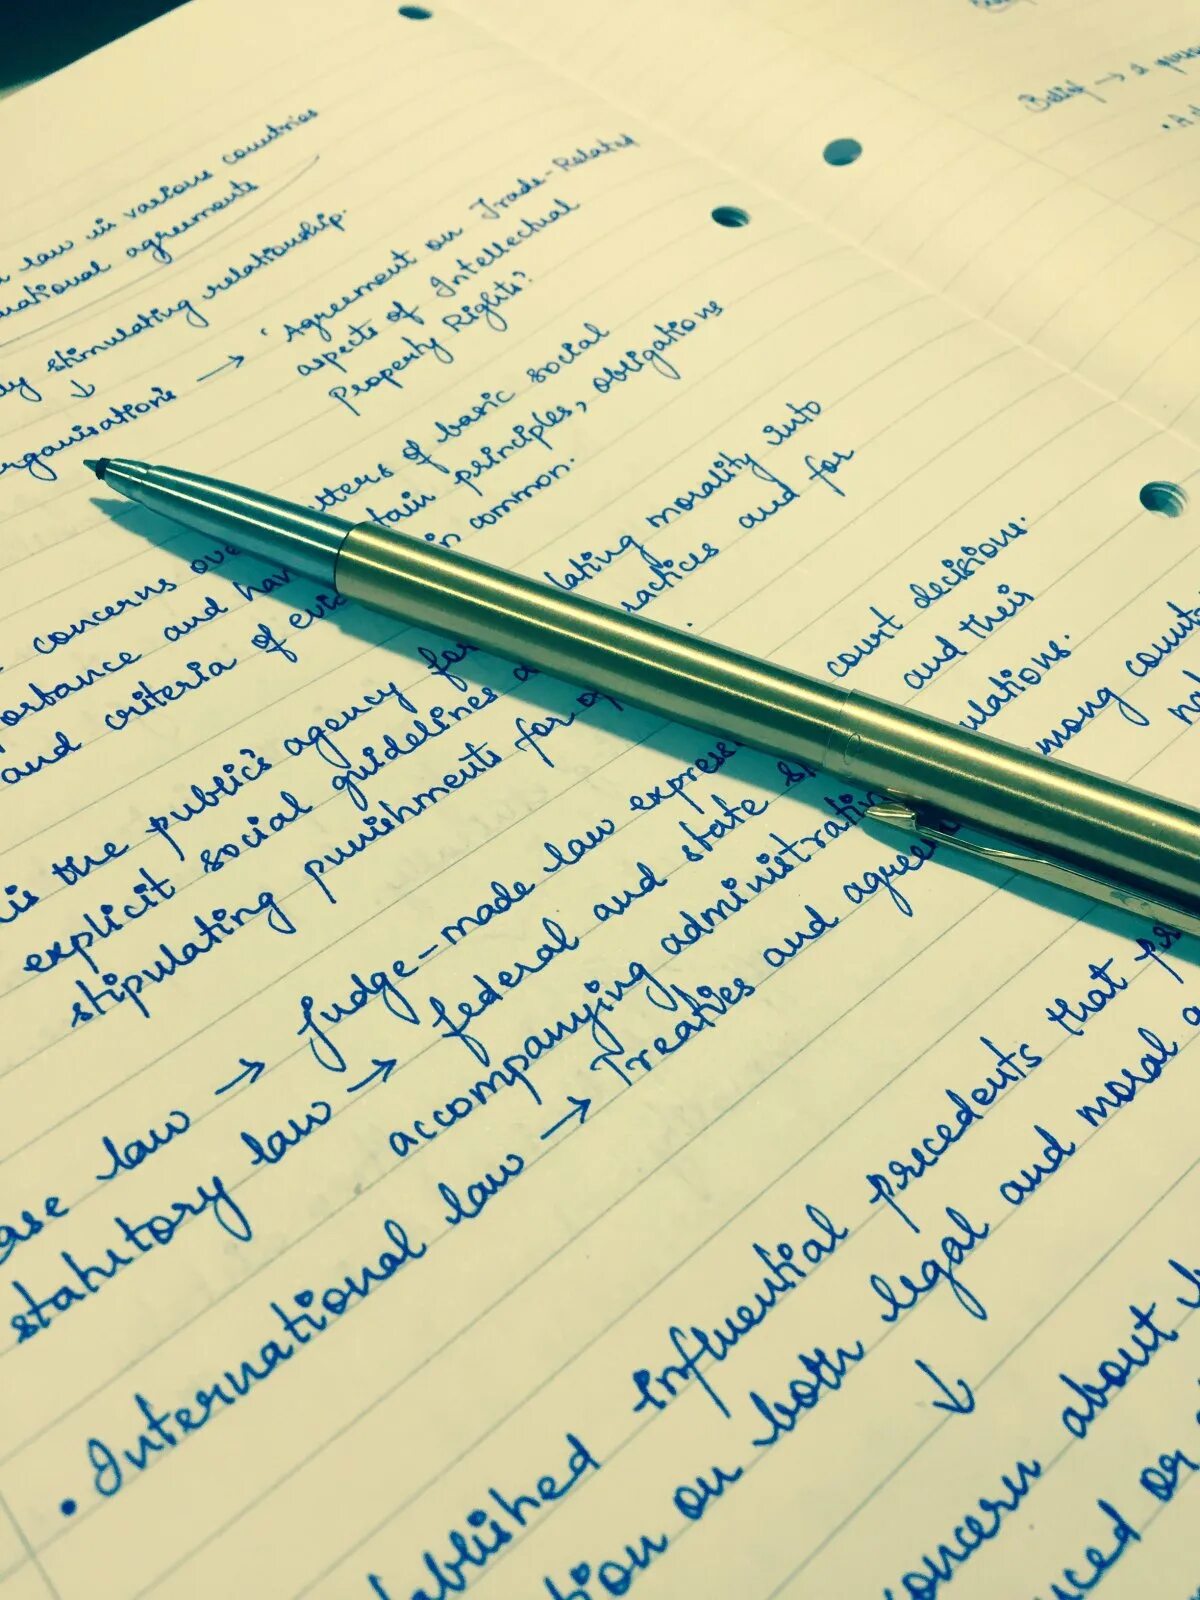 law in various countries
national agreements
stimulating relationship.
↓
organisations → 'Agreement on Trade-Related
aspects of Intellectual
Property Rights'
concerns over matters of basic social
importance and have certain principles, obligations
and criteria of evidence in common.
is the public's agency for translating morality into
explicit social guidelines and practices and for
stipulating punishments for
case law → Judge-made law expressed court decisions.
statutory law → federal and state and their
accompanying administrative regulations.
• International law → Treaties and agreements among
established influential precedents that
on both legal and moral
↓
concern about
or
Belief → 2